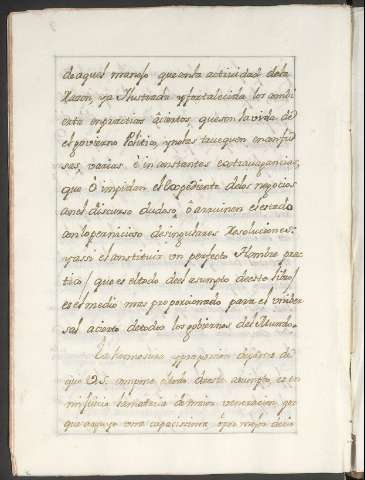 de aquel manejo que con la actividad de la
Razon, ya Ilustrada y fortalecida los
en practicas que son la vida de
el govierno Politico, y no las truequen en confu
sas, varias é inconstantes extravagancias,
que ò impidan el Expediente de los negocios
en el discurso dudoso, ô arruinen el estado
con lo pernicioso de singulares Resoluciones:
y assi el instituir un perfecto Hombre prac
tico / que es el todo de el asumpto de este libro /
es el medio mas proporcionado para el univer
sal acierto de todos los goviernos del Mundo.
La hermosura y proporcion de partes de
que V.S. compone el todo de este assumpto, es en
mi juicio la materia de maior veneracion, por
que arguye una capacissima, ô por mejor decir